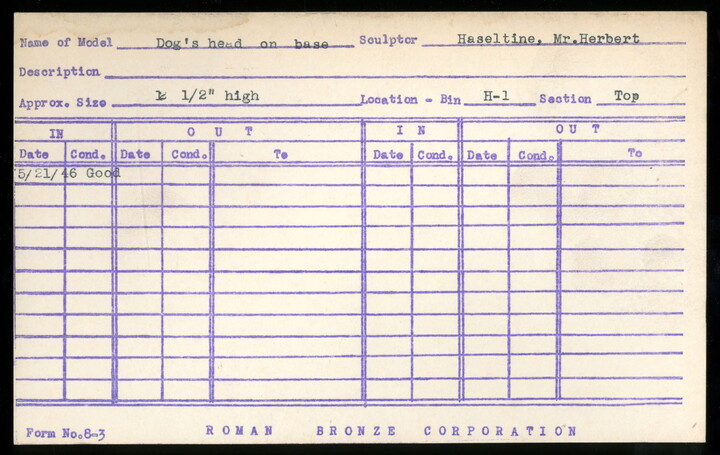 Name of Model Dog's head on base Sculptor Haseltine, Mr.Herbert
Description
Approx. Size 1/2" high Location - Bin H-1 Section Top
IN OUT IN OUT
Date Cond. Date Cond. To Date Cond. Date Cond. To
5/21/46 Good
Form No.8-3 ROMAN BRONZE CORPORATION